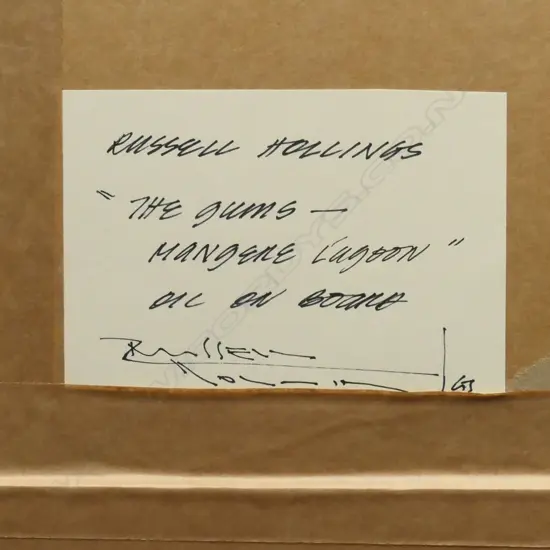 RUSSELL HOLLINGS
"THE GUMS —
MANGERE LAGOON"
OIL ON BOARD
RUSSELL